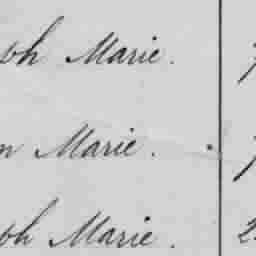 ph Marie.
n Marie.
ph Marie. 2